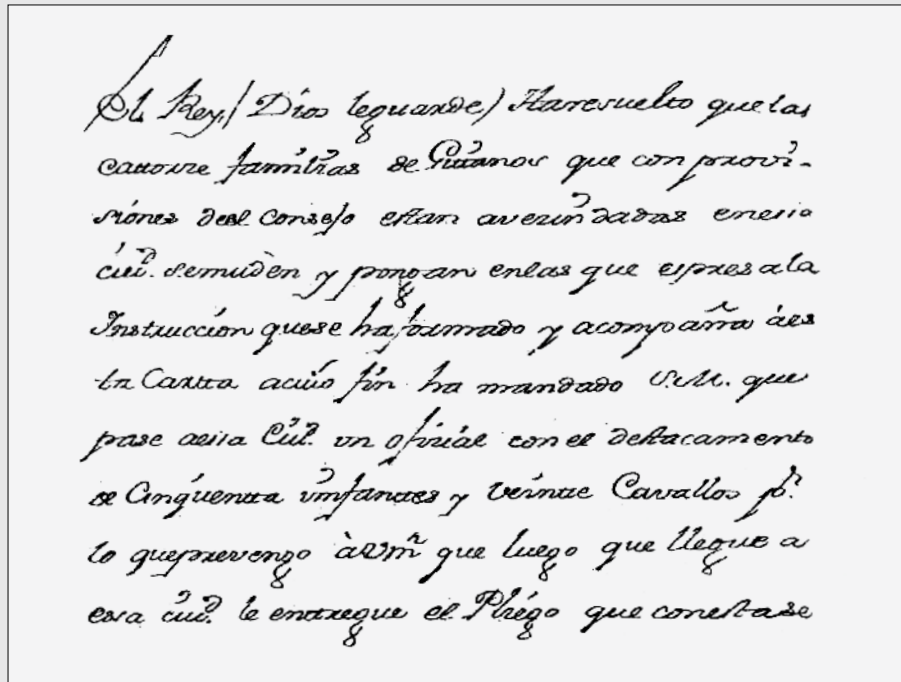 El Rey (Dios leguarde) Haresuelto quelas
catorze familias de Gitanos que con provi-
siones deel Consejo estan avezindadas enesa
ciud. semuden y pongan enlas que espresa la
Instrucción quese ha formado y acompaña à es
ta Carta acuio fin ha mandado S.M. que
pase aesa Ciud. un ofizial con el destacamento
de Cinquenta ynfantes y veinte Cavallos pr.
lo queprevengo à Vm que luego que llegue a
esa ciud. le entregue el Pliego que conesta se